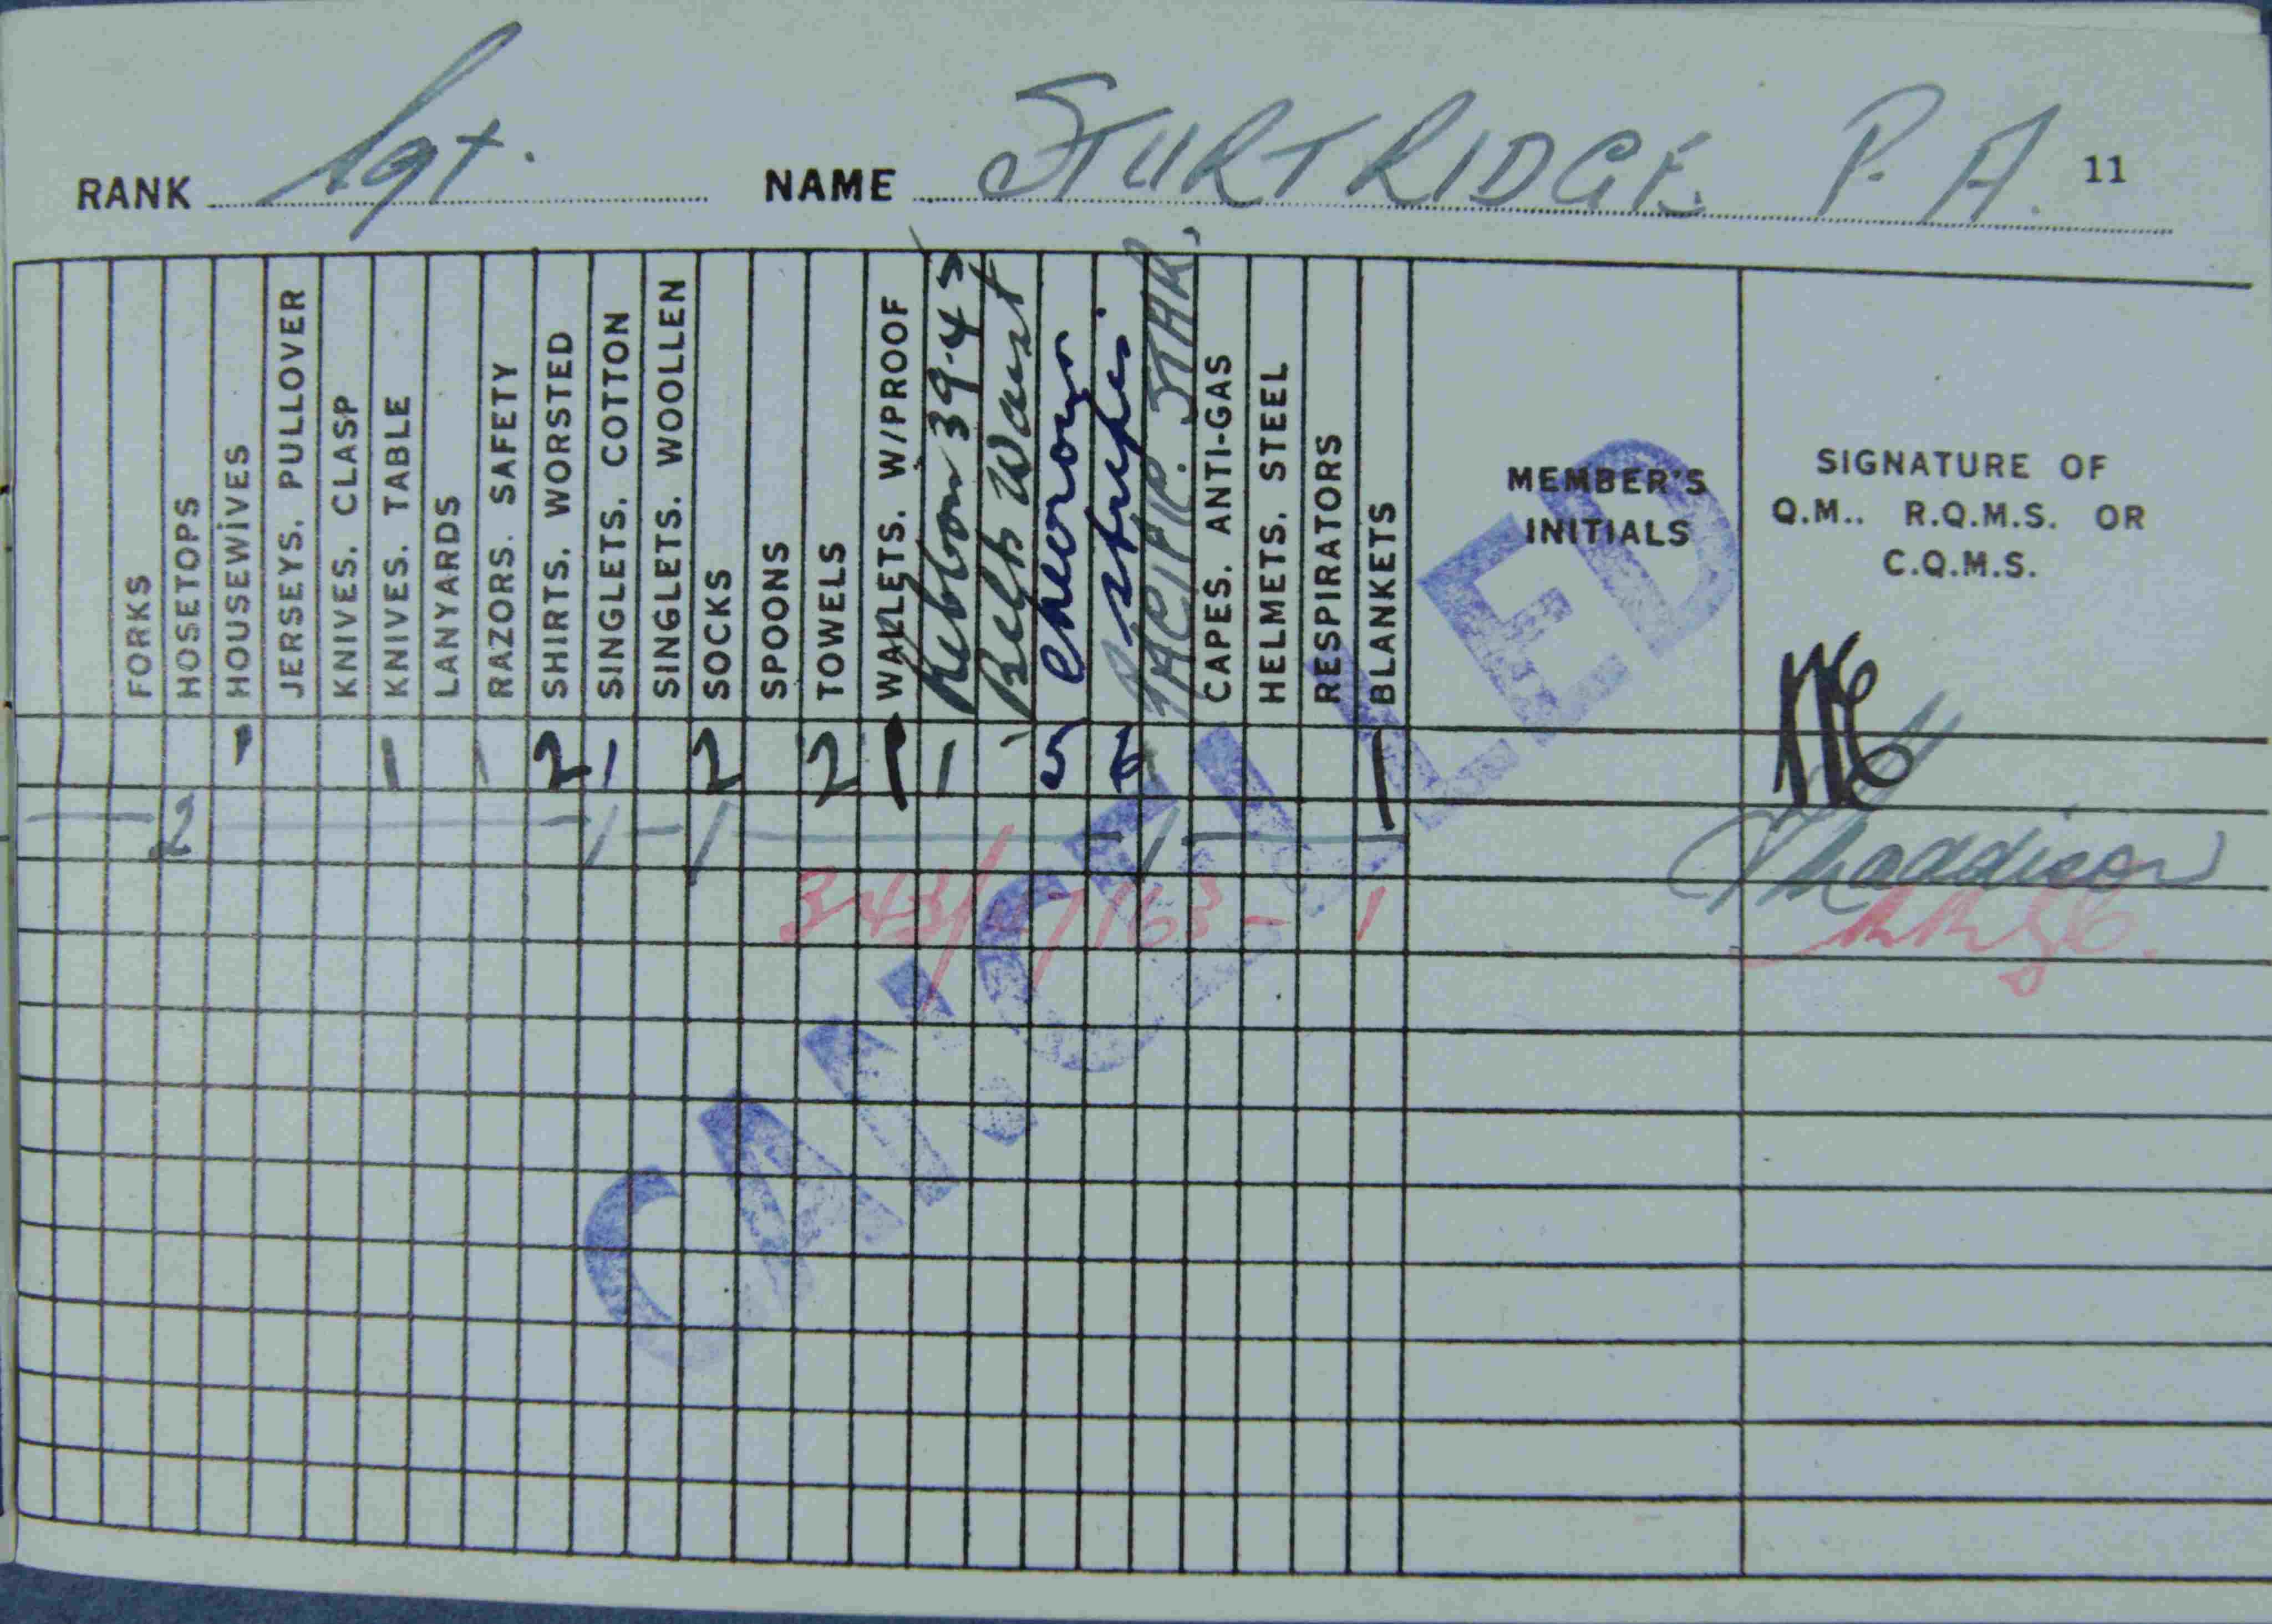 RANK Sgt. NAME STURTRIDGE P. A. 11
FORKS
HOSETOPS
HOUSEWIVES
JERSEYS, PULLOVER
KNIVES, CLASP
KNIVES, TABLE
LANYARDS
RAZORS, SAFETY
SHIRTS, WORSTED
SINGLETS, COTTON
SINGLETS, WOOLLEN
SOCKS
SPOONS
TOWELS
WALLETS, W/PROOF
Ribbon 39-43
Belts Waist
Chevrons
Stripes.
PACIFIC. STAR,
CAPES, ANTI-GAS
HELMETS, STEEL
RESPIRATORS
BLANKETS
MEMBER'S
INITIALS
SIGNATURE OF
Q.M., R.Q.M.S. OR
C.Q.M.S.
1 1 1 2 1 2 2 1 1 1 5 6 1 1
2 1 1 1
Maddison
343/17163 - 1
CANCELLED